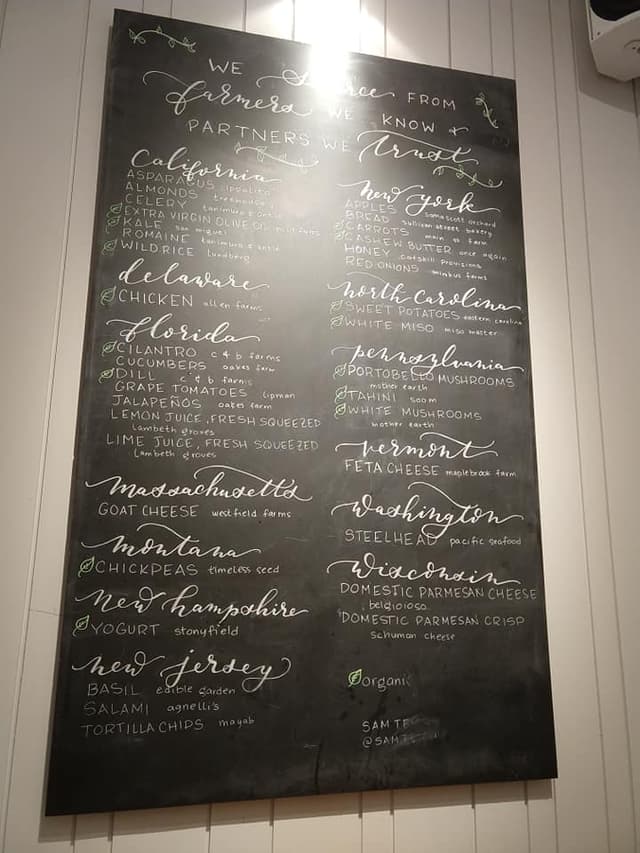 WE source FROM
farmers WE KNOW &
PARTNERS WE trust
California
ASPARAGUS ippolito
ALMONDS treehouse
CELERY tanimura & antle
EXTRA VIRGIN OLIVE OIL
KALE san miguel
ROMAINE tanimura & antle
WILD RICE lundberg
delaware
CHICKEN allen farms
florida
CILANTRO c & b farms
CUCUMBERS oakes farm
DILL c & b farms
GRAPE TOMATOES lipman
JALAPEÑOS oakes farm
LEMON JUICE, FRESH SQUEEZED
lambeth groves
LIME JUICE, FRESH SQUEEZED
lambeth groves
massachusetts
GOAT CHEESE westfield farms
montana
CHICKPEAS timeless seed
new hampshire
YOGURT stonyfield
new jersey
BASIL edible garden
SALAMI agnelli's
TORTILLA CHIPS mayab
new york
APPLES samascott orchard
BREAD sullivan street bakery
CARROTS main st farm
CASHEW BUTTER once again
HONEY catskill provisions
RED ONIONS minkus farms
north carolina
SWEET POTATOES eastern carolina
WHITE MISO miso master
pennsylvania
PORTOBELLO MUSHROOMS
mother earth
TAHINI soom
WHITE MUSHROOMS
mother earth
vermont
FETA CHEESE maplebrook farm
washington
STEELHEAD pacific seafood
wisconsin
DOMESTIC PARMESAN CHEESE
belgioioso
DOMESTIC PARMESAN CRISP
schuman cheese
organic
SAM